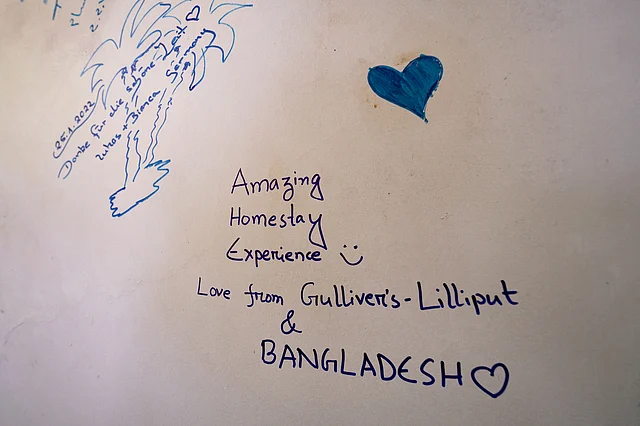 25.1.2022
Danke für die schöne Zeit
Lukas + Bianca
Germany
Amazing
Homestay
Experience
Love from Gulliver's-Lilliput
&
BANGLADESH